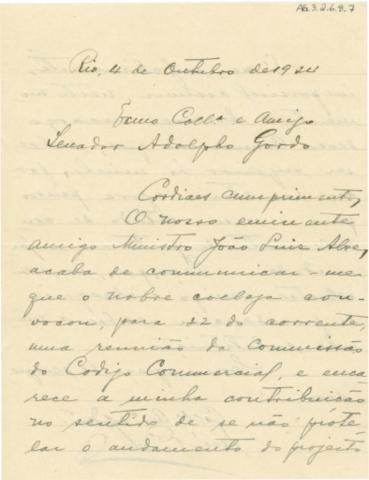 AG.3.2.6.9.7
Rio, 4 de Outubro de 1924
Exmo Collª e Amigo
Senador Adolpho Gordo
Cordiaes cumprimentos,
O nosso eminente
amigo Ministro João Luiz Alves,
acaba de communicar-me
que o nobre collega con-
vocou, para 22 do corrente,
uma reunião da Commissão
do Codigo Commercial, e enca-
rece a minha contribuição
no sentido de se não prote-
lar o andamento do projecto